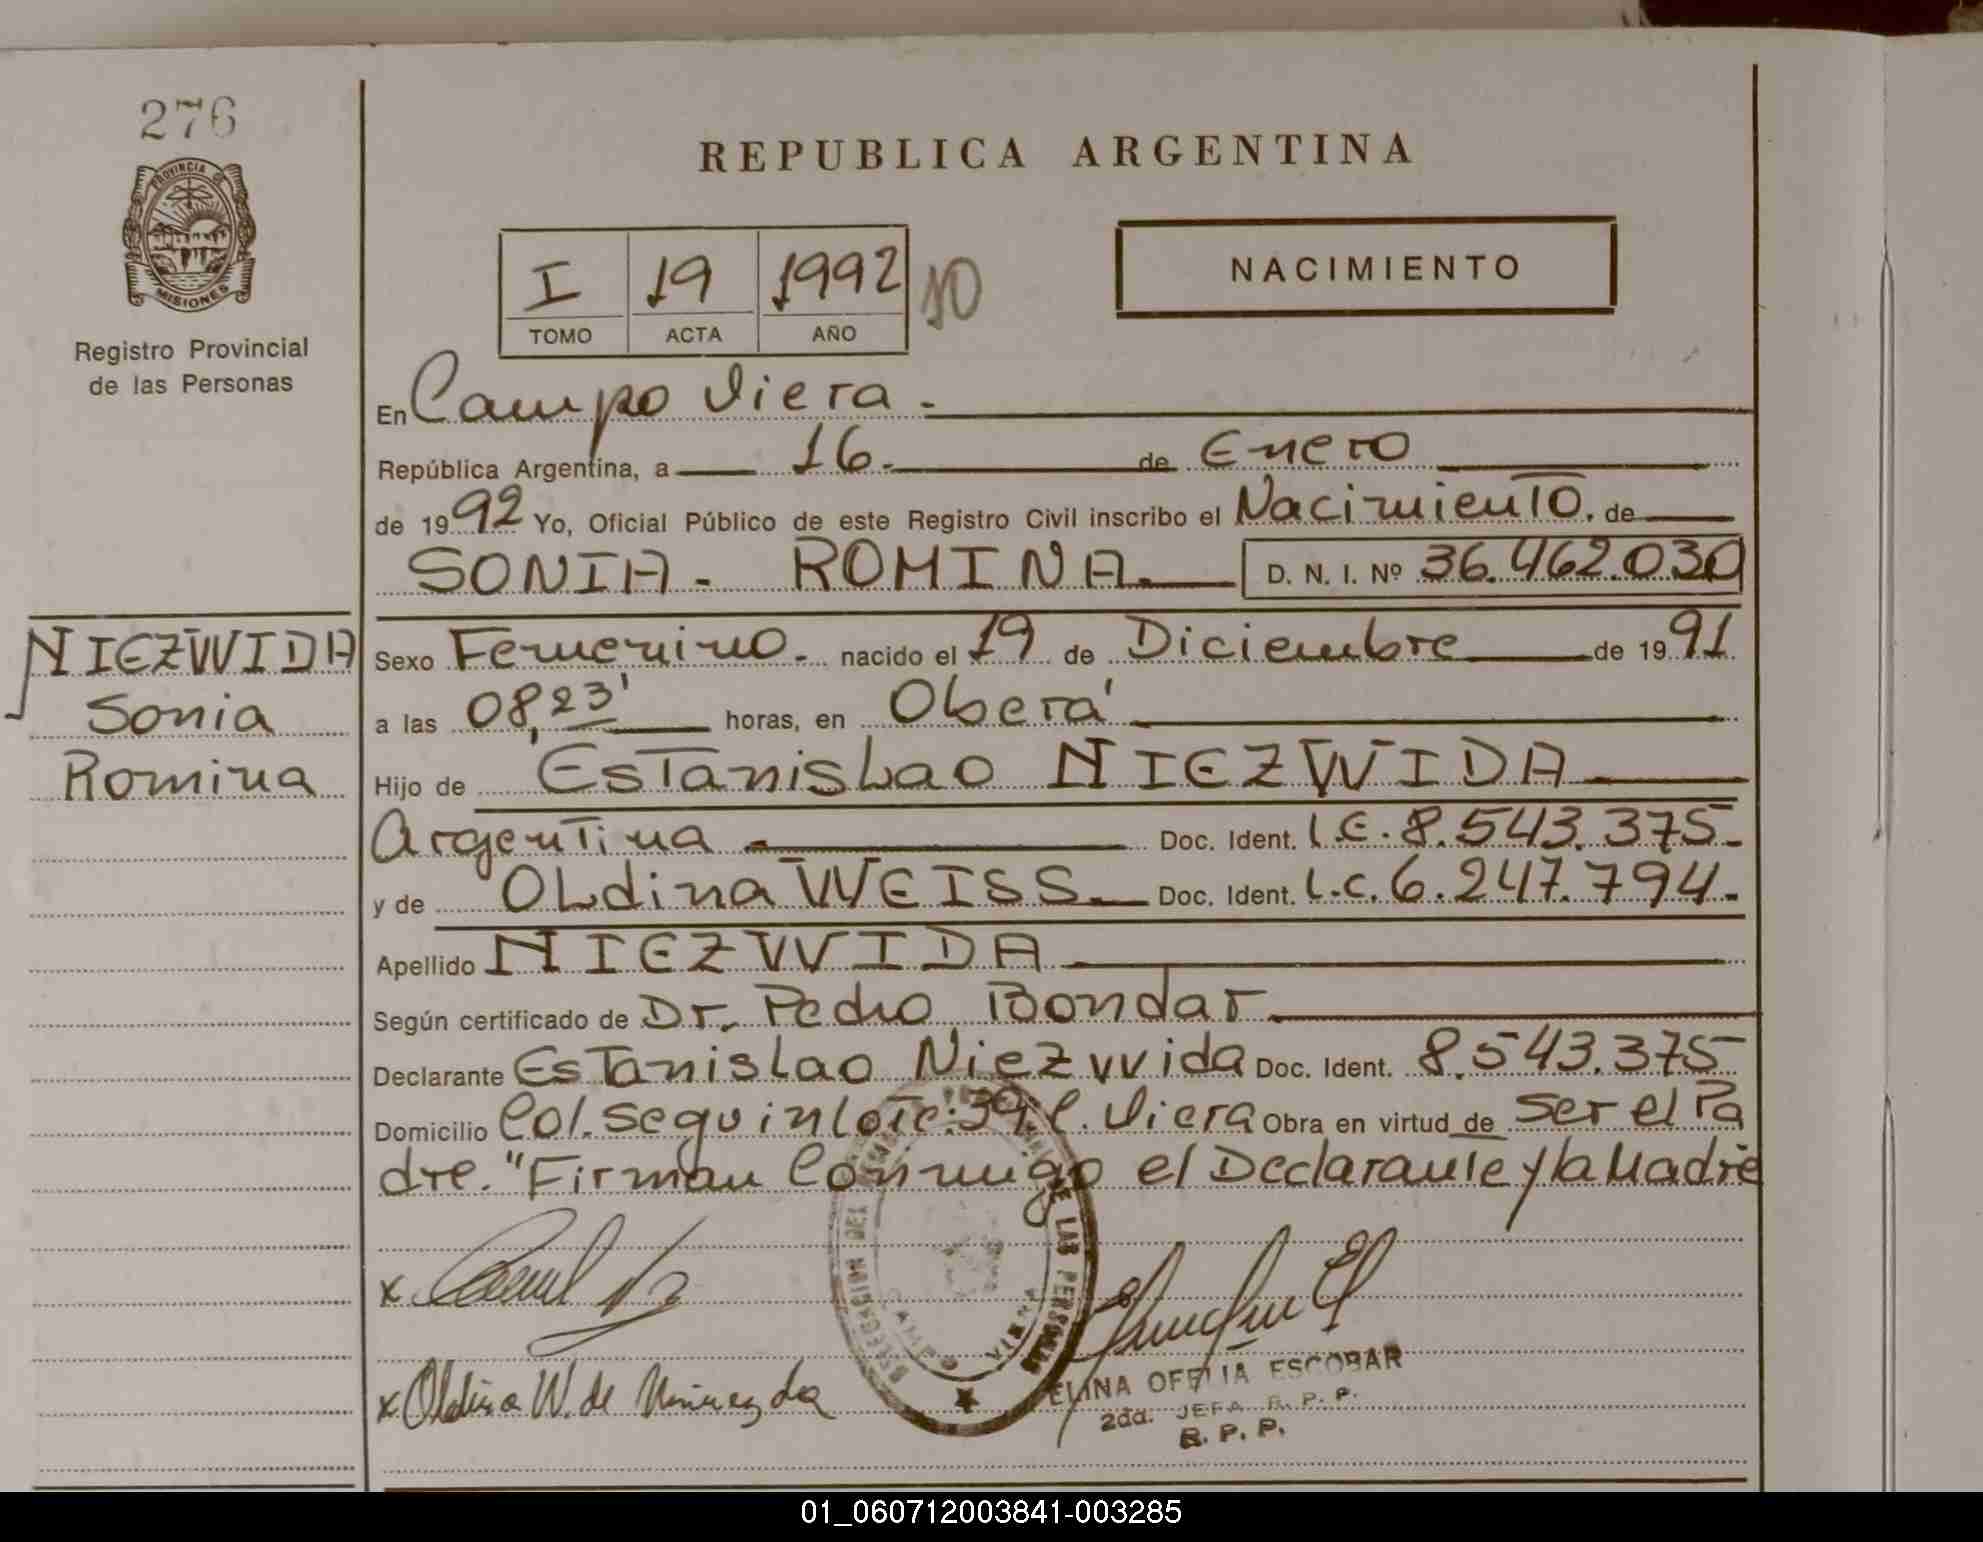 276
PROVINCIA DE
MISIONES
Registro Provincial
de las Personas
REPUBLICA ARGENTINA
I 19 1992 10
TOMO ACTA AÑO
NACIMIENTO
En Campo Viera.
República Argentina, a 16. de Enero
de 1992 Yo, Oficial Público de este Registro Civil inscribo el Nacimiento. de
SONIA. ROMINA. D. N. I. Nº 36.462.030
NIEZWIDA
Sonia
Romina
Sexo Femenino. nacido el 19 de Diciembre de 1991
a las 08,23' horas, en Oberá
Hijo de Estanislao NIEZWIDA
Argentina Doc. Ident. L.E. 8.543.375.
y de Oldina WEISS. Doc. Ident. L.C. 6.247.794.
Apellido NIEZWIDA
Según certificado de Dr. Pedro Bondar
Declarante Estanislao Niezwida Doc. Ident. 8.543.375
Domicilio Col. Seguin lote: 39 C. Viera Obra en virtud de ser el Pa
dre. "Firman Conmigo el Declarante y la Madre
DELEGACION DEL DE LAS PERSONAS
CAMPO VIERA
x
x Oldina W. de
ELINA OFELIA ESCOBAR
2da. JEFA R. P. P.
R. P. P.
01_060712003841-003285